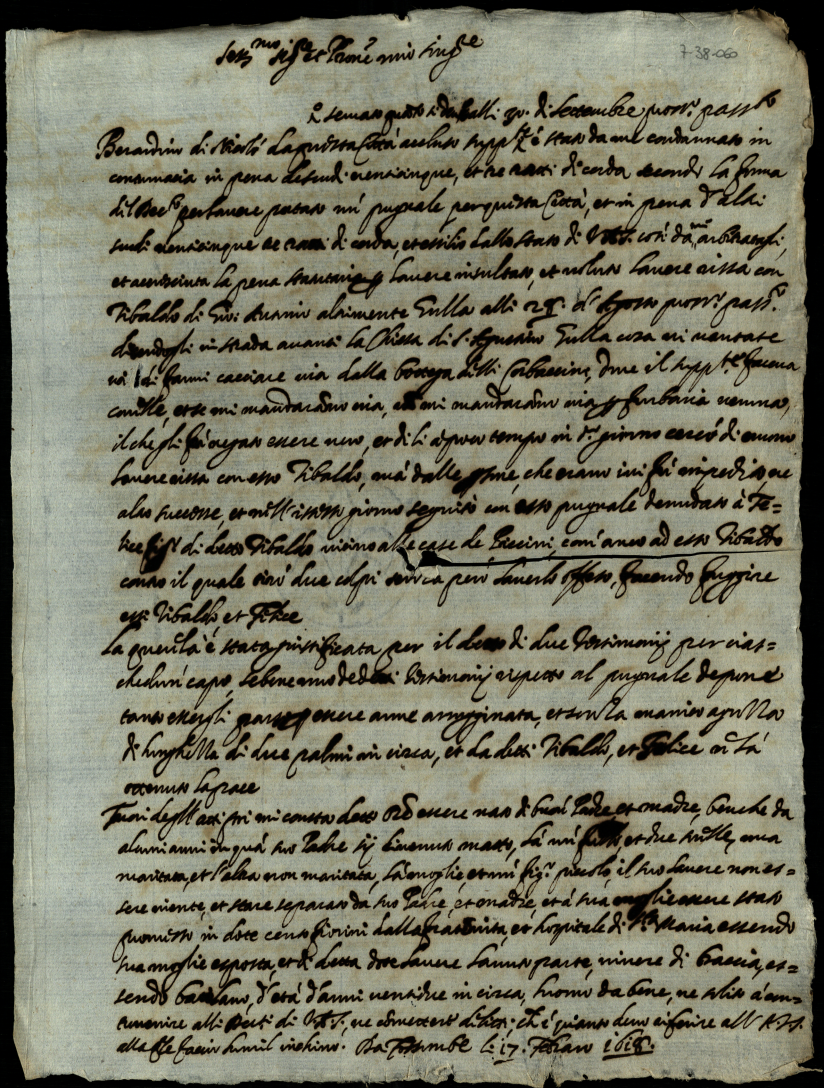 Ser.mo Sig.re et Prone mio sing.re
7-38-060
di Settembre pross.o pass.to
Berardino di Nicolò da questa Città accluso supp.te è stato da me condannato in
contumacia in pena di scudi venticinque, et tre tratti di corda secondo la forma
del per havere portato un pugnale per questa Città, et in pena d'altri
scudi venticinque tre tratti di corda, et essilio dallo stato di V.A.S. così da arbitratagli,
et accresciuta la pena statutaria p havere insultato, et voluto havere rissa con
Tibaldo di altrimente Gulla alli 28. d'Agosto pross.o pass.o
dicendogli in strada avanti la Chiesa di S. Agostino Gulla cosa vi
di farmi cacciare via dalla bottega delli dove il supp.te faceva
et se mi mandaranno via, mi mandaranno via p furbaria
il che gli fù negato essere vero, et di lì a poco tempo in d.o giorno cercò di nuovo
havere rissa con esso Tibaldo, mà dalle gente, che erano ivi fù impedito, ne
altro successe, et nell'istesso giorno seguitò con esso pugnale denudato à Fe=
lice fig.lo di detto Tibaldo vicino alle case de Piccini, com'anco ad esso Tibaldo
contro il quale tirò due colpi senza però haverlo offeso, facendo fuggire
essi Tibaldo, et Felice
La querela è stata giustificata per il detto di due Testimonij per cias=
chedun capo, sebene uno de detti testimonij rispetto al pugnale depone
tanto essergli parso essere arme arrugginata, et senza manico
di lunghezza di due palmi in circa, et da detti Tibaldo, et Felice n'hà
ottenuto la pace
Fuori degl'atti poi mi consta detto Reo essere nato di buon Padre, et madre, benche da
alcuni anni in quà suo Padre sij divenuto matto, hà un et due sorelle, una
maritata, et l'altra non maritata, hà moglie, et un fig.lo piccolo, il suo havere non es=
sere niente, et stare separato da suo Padre, et madre, et à sua moglie essere stato
promesso in dote cento fiorini dalla fraternita, et hospitale di S.ta Maria essendo
sua moglie esposta, et di detta dote havere havuto parte, vivere di braccia, es=
sendo d'età d'anni ventidue in circa, huomo da bene, ne solito à con=
travenire alli di V.A.S., ne commettere delitti; ch'è quanto devo riferire all'A.V.S.
alla quale faccio humil inchino. Da li 17. Febraro 1618.